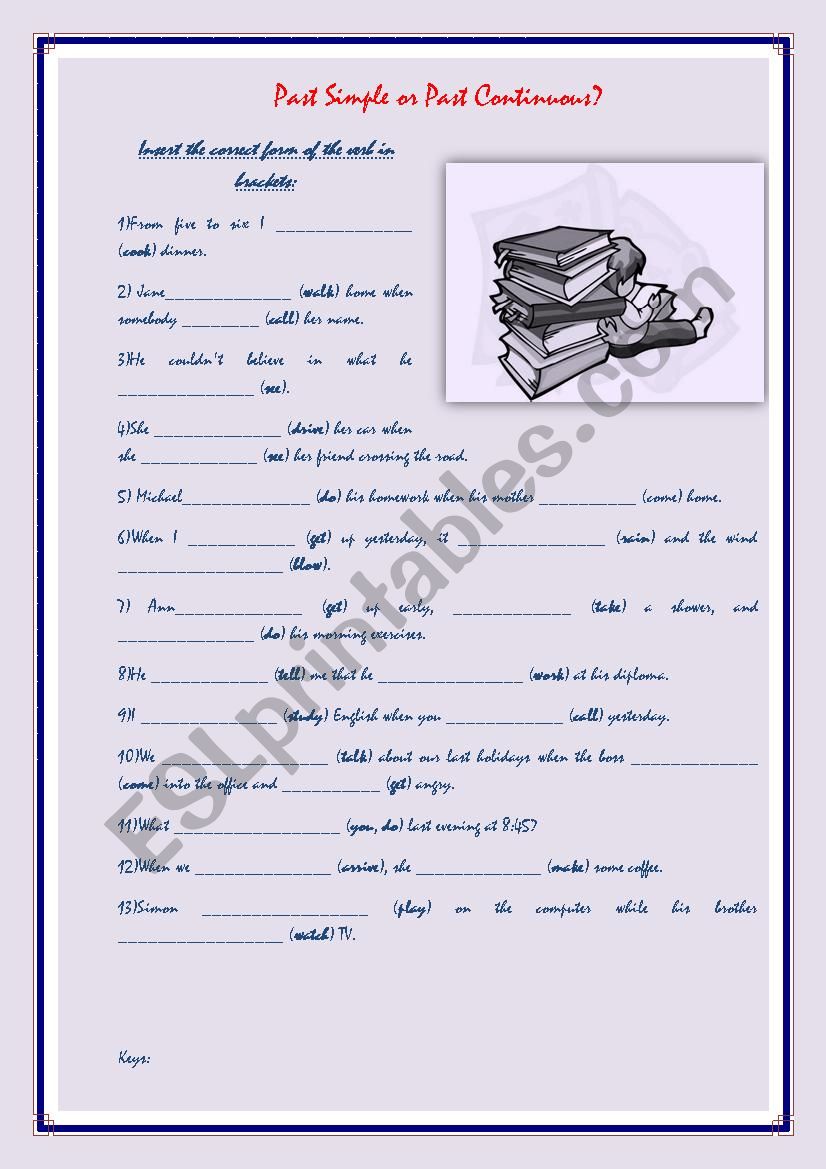 Past Simple or Past Continuous?
Insert the correct form of the verb in
brackets:
1)From five to six I ______________
(cook) dinner.
2) Jane_____________ (walk) home when
somebody ________ (call) her name.
3)He couldn't believe in what he
______________ (see).
4)She _____________ (drive) her car when
she ____________ (see) her friend crossing the road.
5) Michael_____________ (do) his homework when his mother __________ (come) home.
6)When I ___________ (get) up yesterday, it _______________ (rain) and the wind
_________________ (blow).
7) Ann_____________ (get) up early, ____________ (take) a shower, and
______________ (do) his morning exercises.
8)He ____________ (tell) me that he _______________ (work) at his diploma.
9)I ______________ (study) English when you ____________ (call) yesterday.
10)We _________________ (talk) about our last holidays when the boss _____________
(come) into the office and __________ (get) angry.
11)What _________________ (you, do) last evening at 8:45?
12)When we ______________ (arrive), she _____________ (make) some coffee.
13)Simon _________________ (play) on the computer while his brother
_________________ (watch) TV.
Keys:
ESLprintables.com